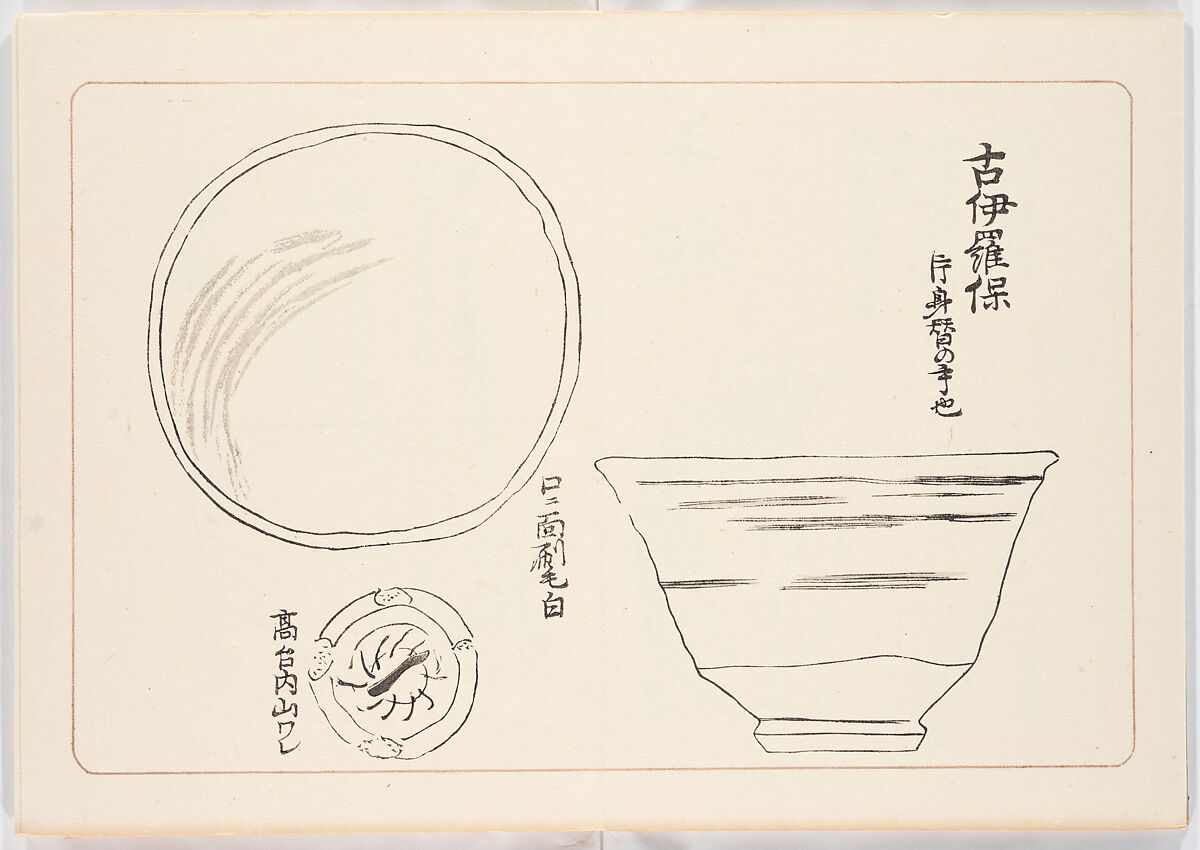 古伊羅保
片身替の手也
口ニ一面刷毛白
高台内山ワレ